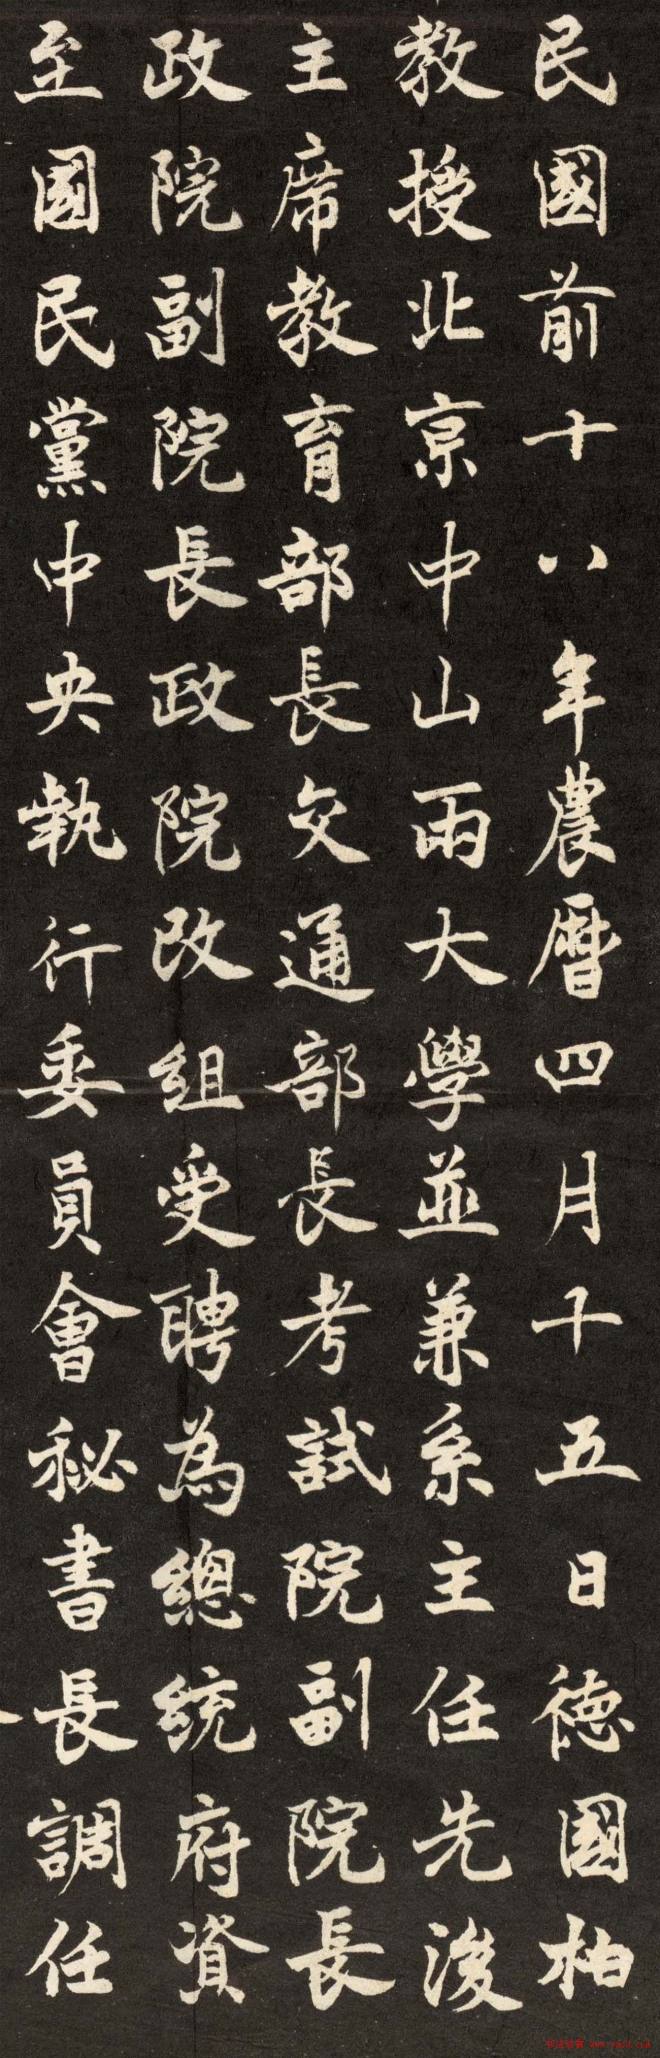 民國前十八年農曆四月十五日德國柏
教授北京中山兩大學並兼系主任先後
主席教育部長交通部長考試院副院長
政院副院長政院改組受聘為總統府資
至國民黨中央執行委員會秘書長調任